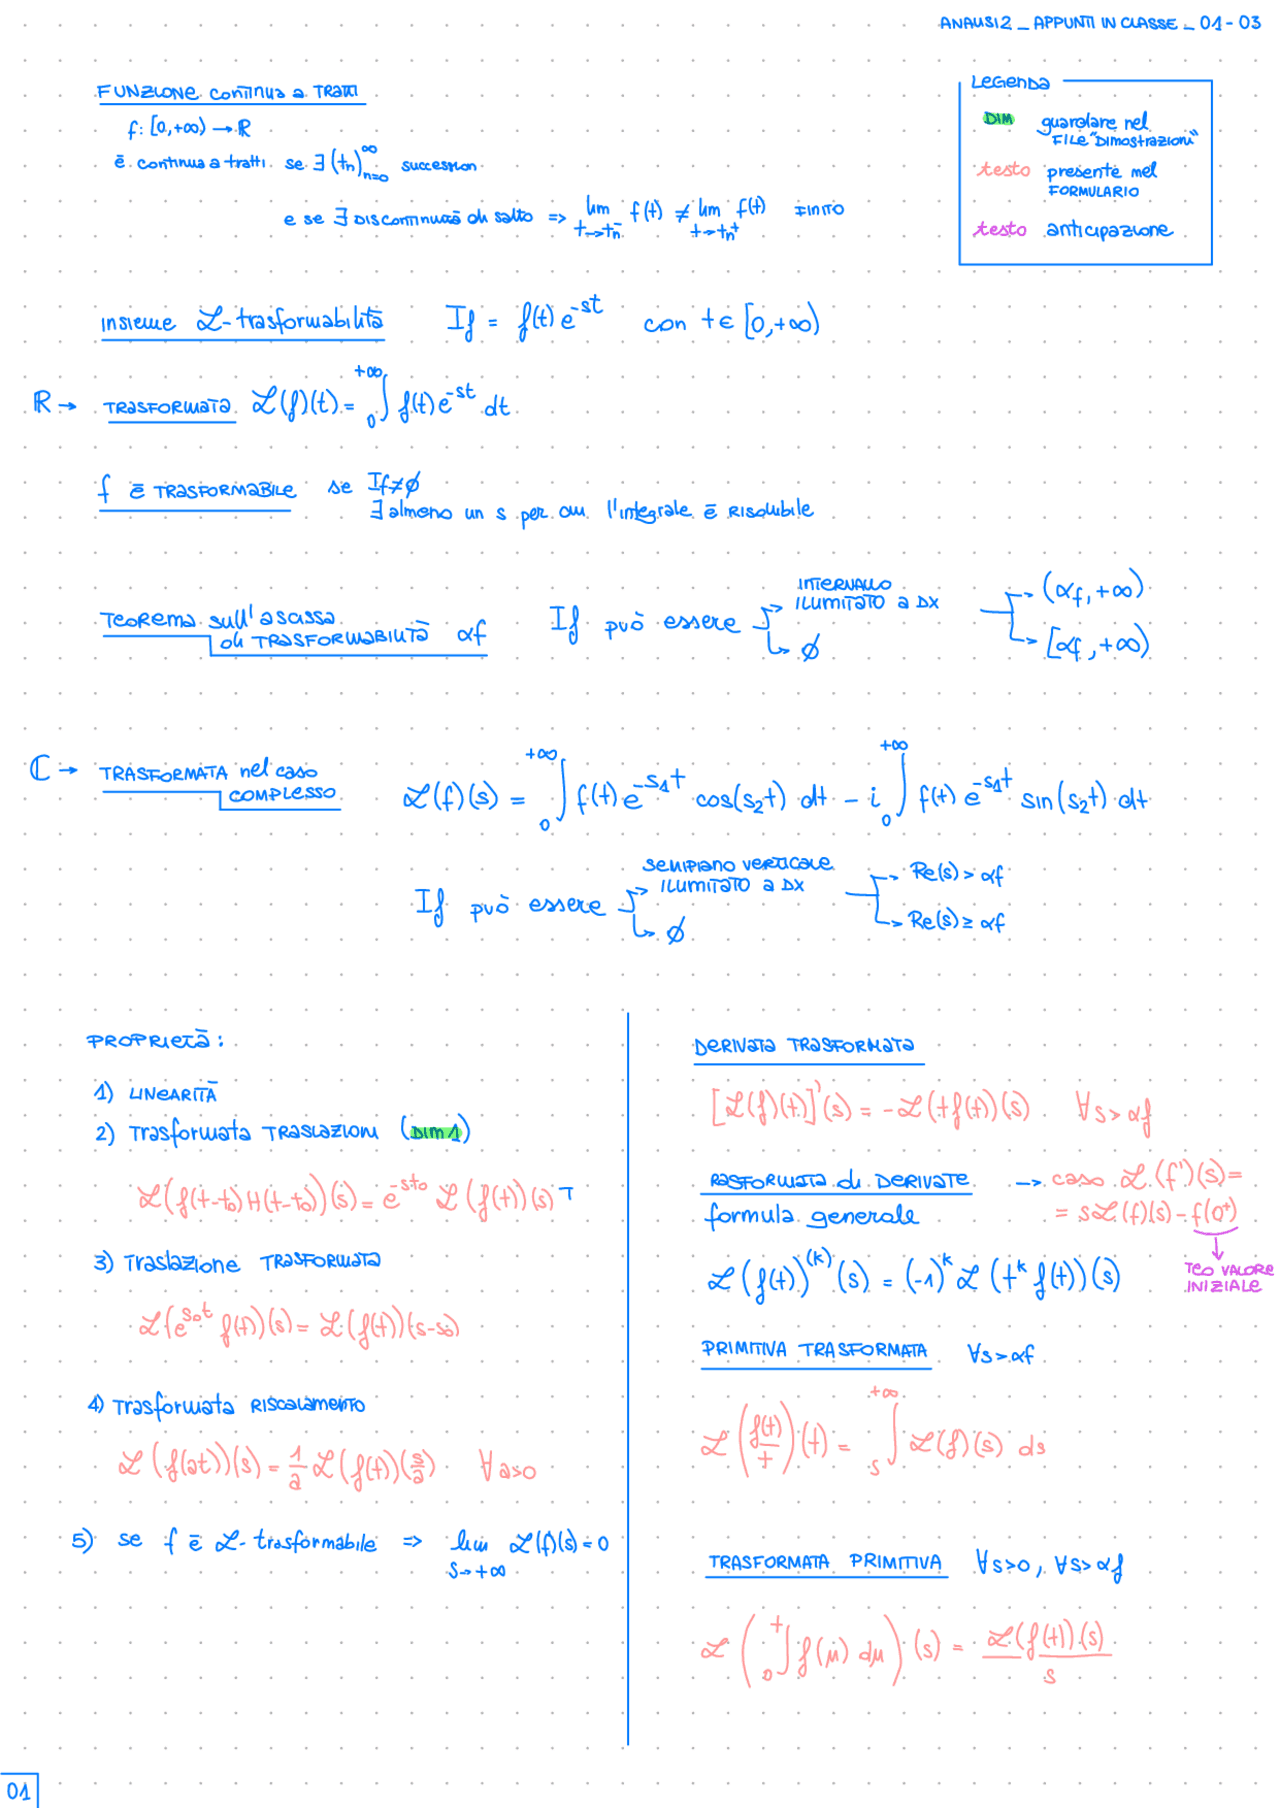 ANALISI 2 _ APPUNTI IN CLASSE _ 01 - 03
LEGENDA
DIM guardare nel FILE "DIMOSTRAZIONI"
testo presente nel FORMULARIO
testo anticipazione
FUNZIONE continua a TRATTI
f: [0,+∞) → ℝ
è continua a tratti se ∃ (tₙ)ₙ₌₀^∞ succession
e se ∃ DISCONTINUITÀ di salto => lim t→tₙ⁻ f(t) ≠ lim t→tₙ⁺ f(t) FINITO
insieme ℒ-trasformabilità If = f(t) e^-st con t ∈ [0,+∞)
ℝ → TRASFORMATA ℒ(f)(t) = ∫₀^+∞ f(t) e^-st dt
f è TRASFORMABILE se If ≠ ∅
∃ almeno un s per cui l'integrale è RISOLVIBILE
TEOREMA sull'ascissa di TRASFORMABILITÀ αf
If può essere → INTERVALLO ILLIMITATO A DX → (αf, +∞)
→ [αf, +∞)
→ ∅
ℂ → TRASFORMATA nel caso COMPLESSO
ℒ(f)(s) = ∫₀^+∞ f(t) e^-s₁t cos(s₂t) dt - i ∫₀^+∞ f(t) e^-s₁t sin(s₂t) dt
If può essere → SEMIPIANO VERTICALE ILLIMITATO A DX → Re(s) > αf
→ Re(s) ≥ αf
→ ∅
PROPRIETÀ:
1) LINEARITÀ
2) Trasformata TRASLAZIONI (DIM 1)
ℒ(f(t-t₀) H(t-t₀))(s) = e^-st₀ ℒ(f(t))(s) T
3) Traslazione TRASFORMATA
ℒ(e^s₀t f(t))(s) = ℒ(f(t))(s-s₀)
4) Trasformata RISCALAMENTO
ℒ(f(at))(s) = 1/a ℒ(f(t))(s/a) ∀ a>0
5) se f è ℒ-trasformabile => lim s→+∞ ℒ(f)(s) = 0
DERIVATA TRASFORMATA
[ℒ(f)(t)]'(s) = -ℒ(t f(t))(s) ∀s > αf
RASFORMATA di DERIVATE → caso ℒ(f')(s) =
formula generale = sℒ(f)(s) - f(0⁺)
TEO VALORE INIZIALE
ℒ(f(t))^(k)(s) = (-1)^k ℒ(t^k f(t))(s)
PRIMITIVA TRASFORMATA ∀s > αf
ℒ(f(t)/t)(t) = ∫ₛ^+∞ ℒ(f)(s) ds
TRASFORMATA PRIMITIVA ∀s>0, ∀s > αf
ℒ(∫₀^t f(μ) dμ)(s) = ℒ(f(t))(s)/s
01